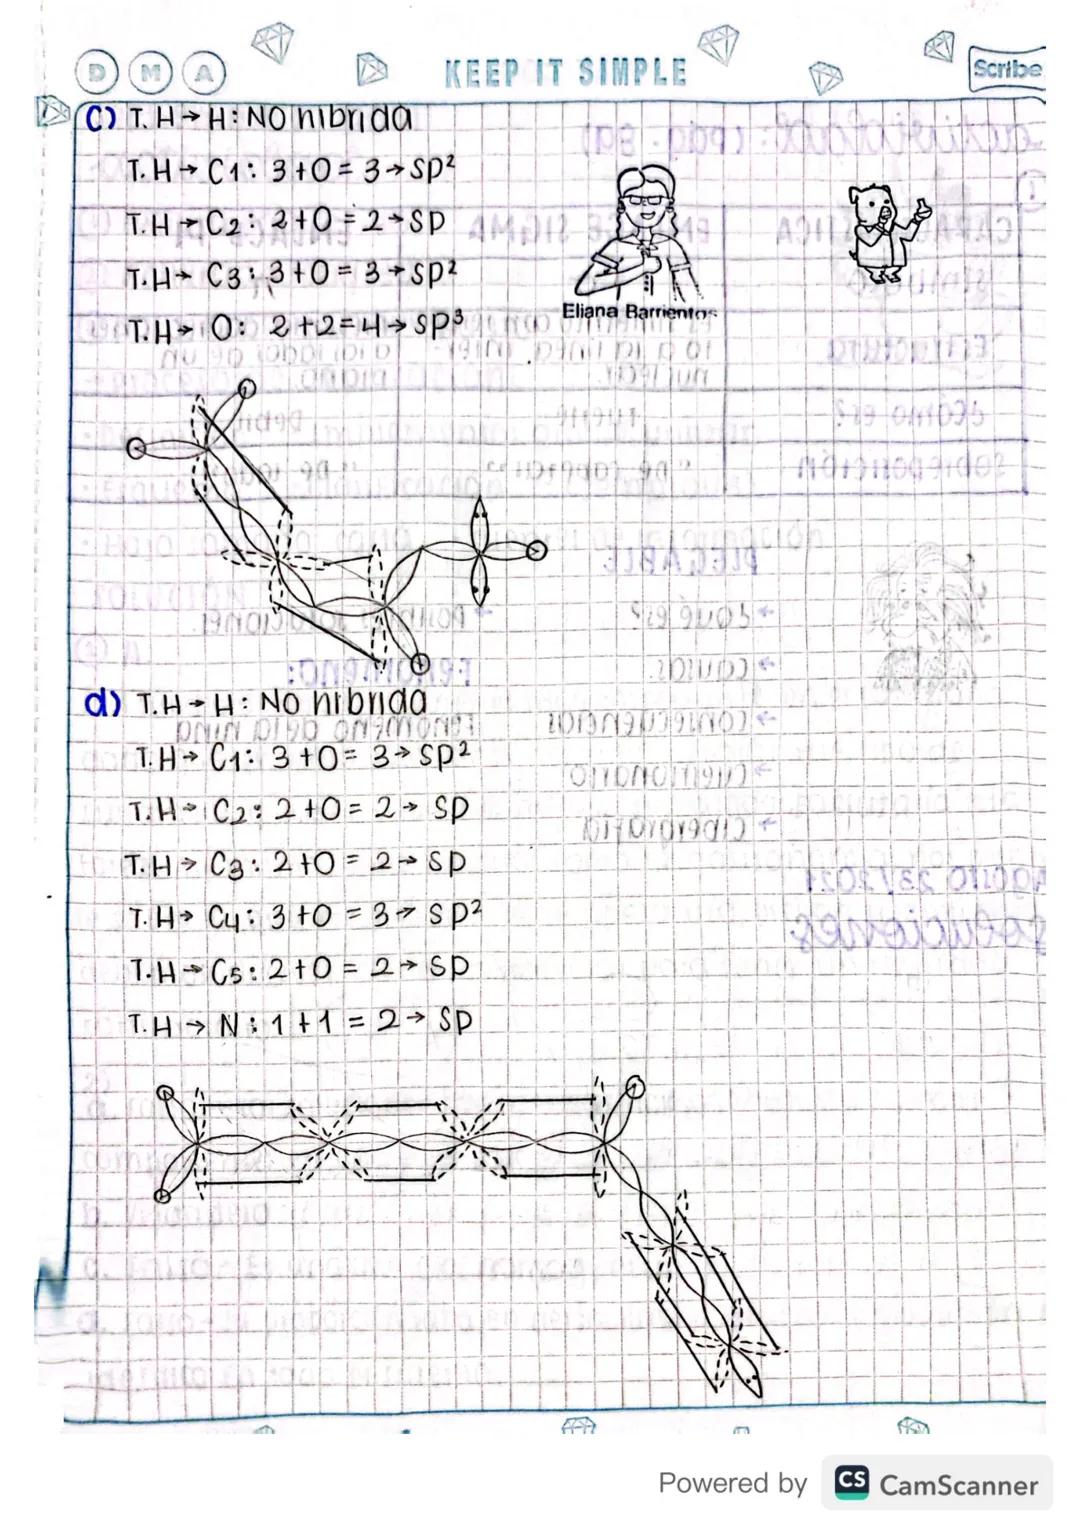 D M A
KEEP IT SIMPLE
Scribe
c) T.H → H: NO híbrida
T.H → C1: 3+0 = 3 → sp²
T.H → C2: 2+0 = 2 → sp
T.H → C3: 3+0 = 3 → sp²
T.H → O: 2+2=4 → sp³
Eliana Barrientos
d) T.H → H: No híbrida
T.H → C1: 3+0= 3 → sp²
T.H → C2: 2+0= 2 → sp
T.H → C3: 2+0 = 2 → sp
T.H → C4: 3+0 = 3 → sp²
T.H → C5: 2+0 = 2 → sp
T.H → N: 1+1 = 2 → sp
Powered by CS CamScanner